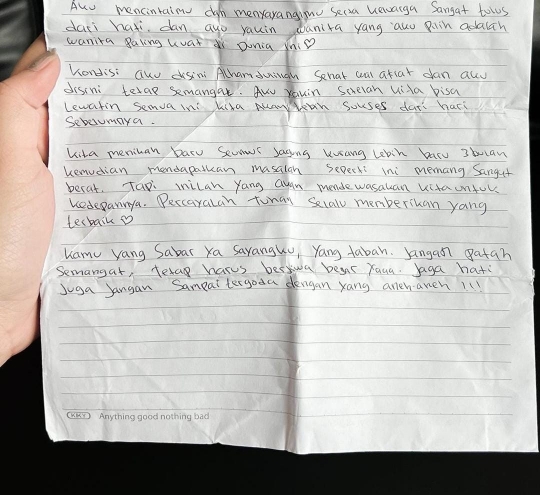 Aku mencintaimu dan menyayangimu serta keluarga sangat tulus
dari hati. dan aku yakin wanita yang aku pilih adalah
wanita paling kuat di Dunia ini♡
Kondisi aku disini Alhamdulillah sehat wal afiat dan aku
disini tetap semangat. Aku yakin setelah kita bisa
Lewatin Semua ini kita Akan lebih Sukses dari hari
Sebelumnya.
Kita menikah baru Seumur Jagung kurang lebih baru 3 bulan
kemudian mendapatkan masalah seperti ini memang Sangat
berat. Tapi inilah yang akan mendewasakan kita untuk
kedepannya. Percayalah Tuhan Selalu memberikan yang
terbaik ♡
Kamu yang Sabar ya Sayangku, Yang tabah. Jangan patah
Semangat, Tetap harus berjiwa besar yaaa. Jaga hati
Juga Jangan Sampai tergoda dengan yang aneh-aneh !!!
KKY Anything good nothing bad